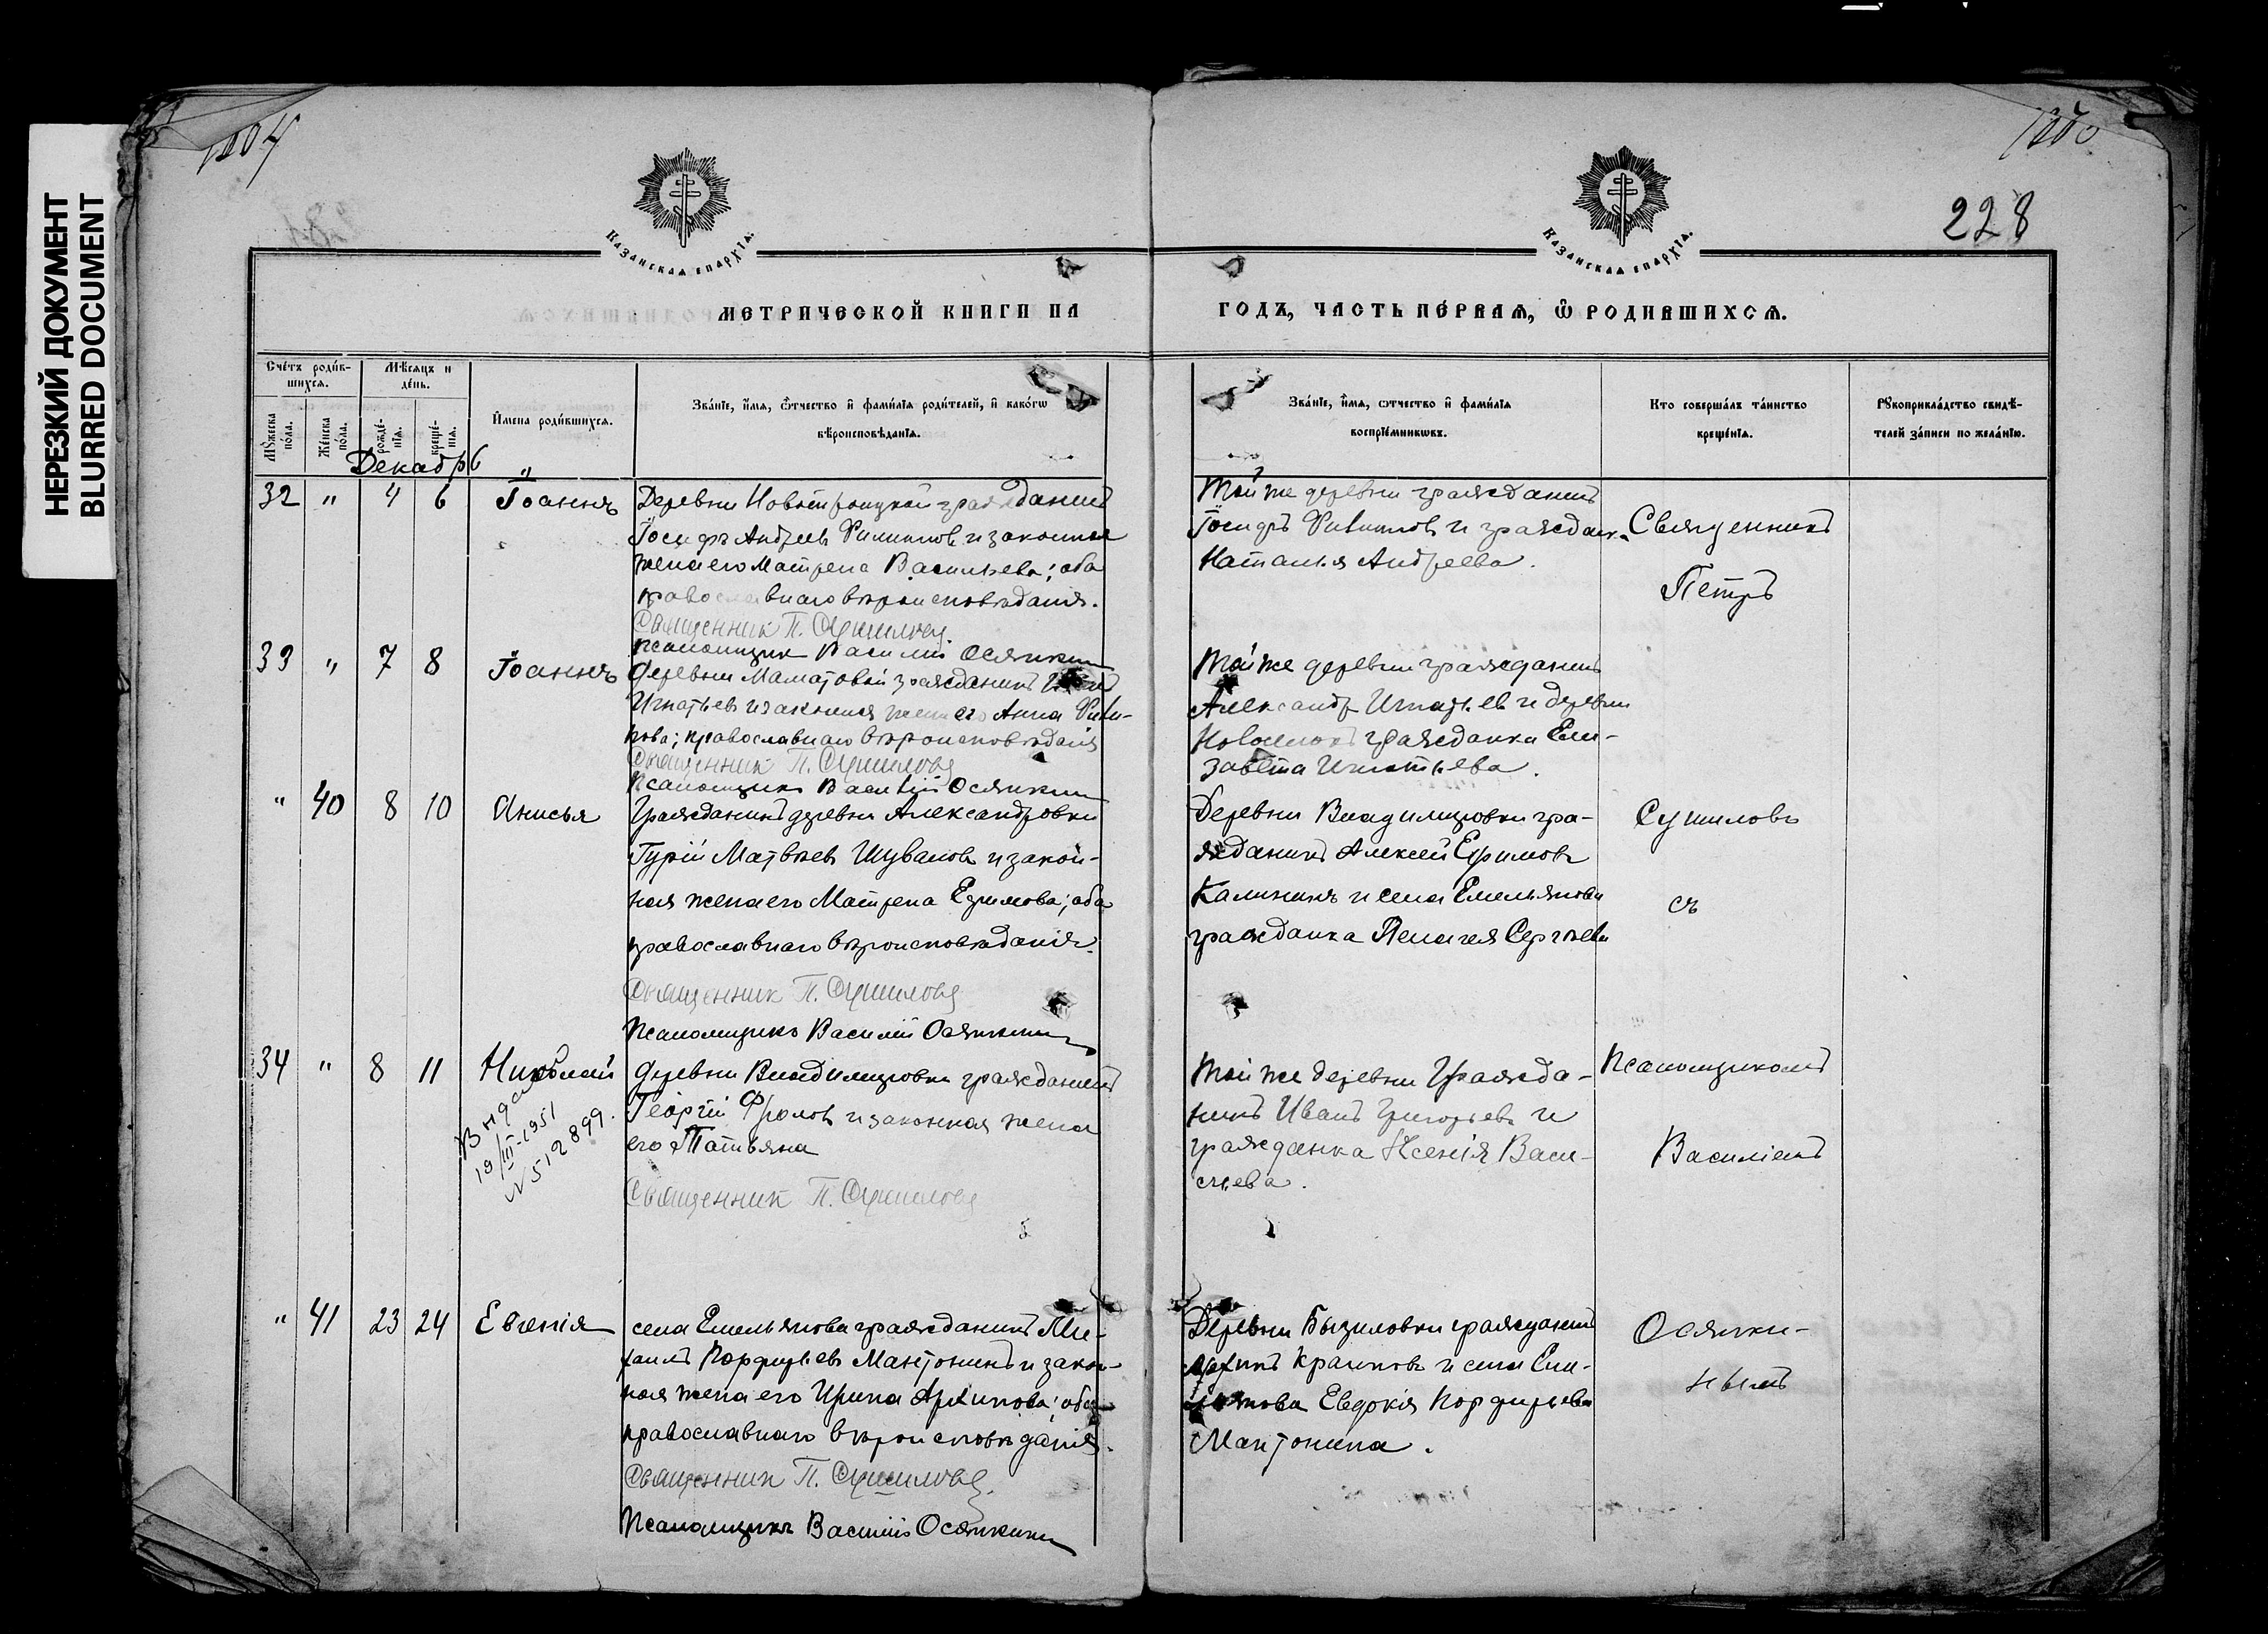 НЕРЕЗКИЙ ДОКУМЕНТ
BLURRED DOCUMENT
228
Казанская епархїа.
Казанская епархїа.
МЕТРИЧЕСКОЙ КНИГИ НА
ГОДЪ, ЧАСТЬ ПЕРВАЯ, Ѿ РОДИВШИХСЯ.
Счетъ родившихся.
Мѣсяцъ и день.
Мужеска пола.
Женска пола.
рожденїя.
крещенїя.
Имена родившихся.
Званїе, имя, отчество и фамилїя родителей, и какогw
вѣроисповѣданїя.
Званїе, имя, отчество и фамилїя
воспрїемникwвъ.
Кто совершалъ таинство
крещенїя.
Рукоприкладство свидѣ-
телей записи по желанїю.
Декабрь
32 " 4 6 Іоаннъ
Деревни Новотроицкой гражданинъ
Іосифъ Андреевъ Филиповъ и законная
жена его Матрена Васильева; оба
православнаго вѣроисповѣданія.
Священник П. Сушиловъ.
Псаломщик Василій Осяткинъ
Той же деревни гражданинъ
Іосифъ Филиповъ и граждан.
Наталья Андреева.
Священникъ
Петръ
33 " 7 8 Іоаннъ
Деревни Маматовой гражданинъ
Игнатьевъ и законная жена его Анна
православнаго вѣроисповѣданія
Священник П. Сушиловъ
Псаломщикъ Василій Осяткинъ
Той же деревни гражданинъ
Александръ Игнатьевъ и деревни
гражданка Ели-
завета Игнатьева.
" 40 8 10 Анисья
Гражданинъ деревни Александровки
Гурій Матвѣевъ Шуваловъ и закон-
ная жена его Матрена Ефимова; оба
православнаго вѣроисповѣданія.
Священник П. Сушиловъ
Псаломщикъ Василій Осяткинъ
Деревни Владимировки гра-
жданинъ Алексей Ефимовъ
Калининъ и села Емельянова
гражданка Пелагея Сергѣева
Сушиловъ
съ
34 " 8 11 Николай
Выдано
19/III-1951
N 512899.
Деревни Владимировки гражданинъ
Георгій Фроловъ и законная жена
его Татьяна
Священник П. Сушиловъ
Той же деревни Гражда-
нинъ Иванъ Григорьевъ и
гражданка Ксенія Васи-
льева.
Псаломщикомъ
Василіемъ
" 41 23 24 Евгенія
села Емельянова гражданинъ Ми-
хаилъ Порфирьевъ Мантонинъ и закон-
ная жена его Ирина Архипова; оба
православнаго вѣроисповѣданія.
Священник П. Сушиловъ.
Псаломщикъ Василій Осяткинъ
Деревни гражданинъ
Архипъ и села Еме-
льянова Евдокія Порфирьева
Мантонина.
Осятки-
нымъ